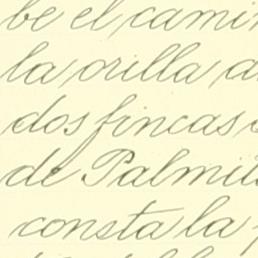 be el cami
la orilla a
dos fincas
de Palmi
consta la